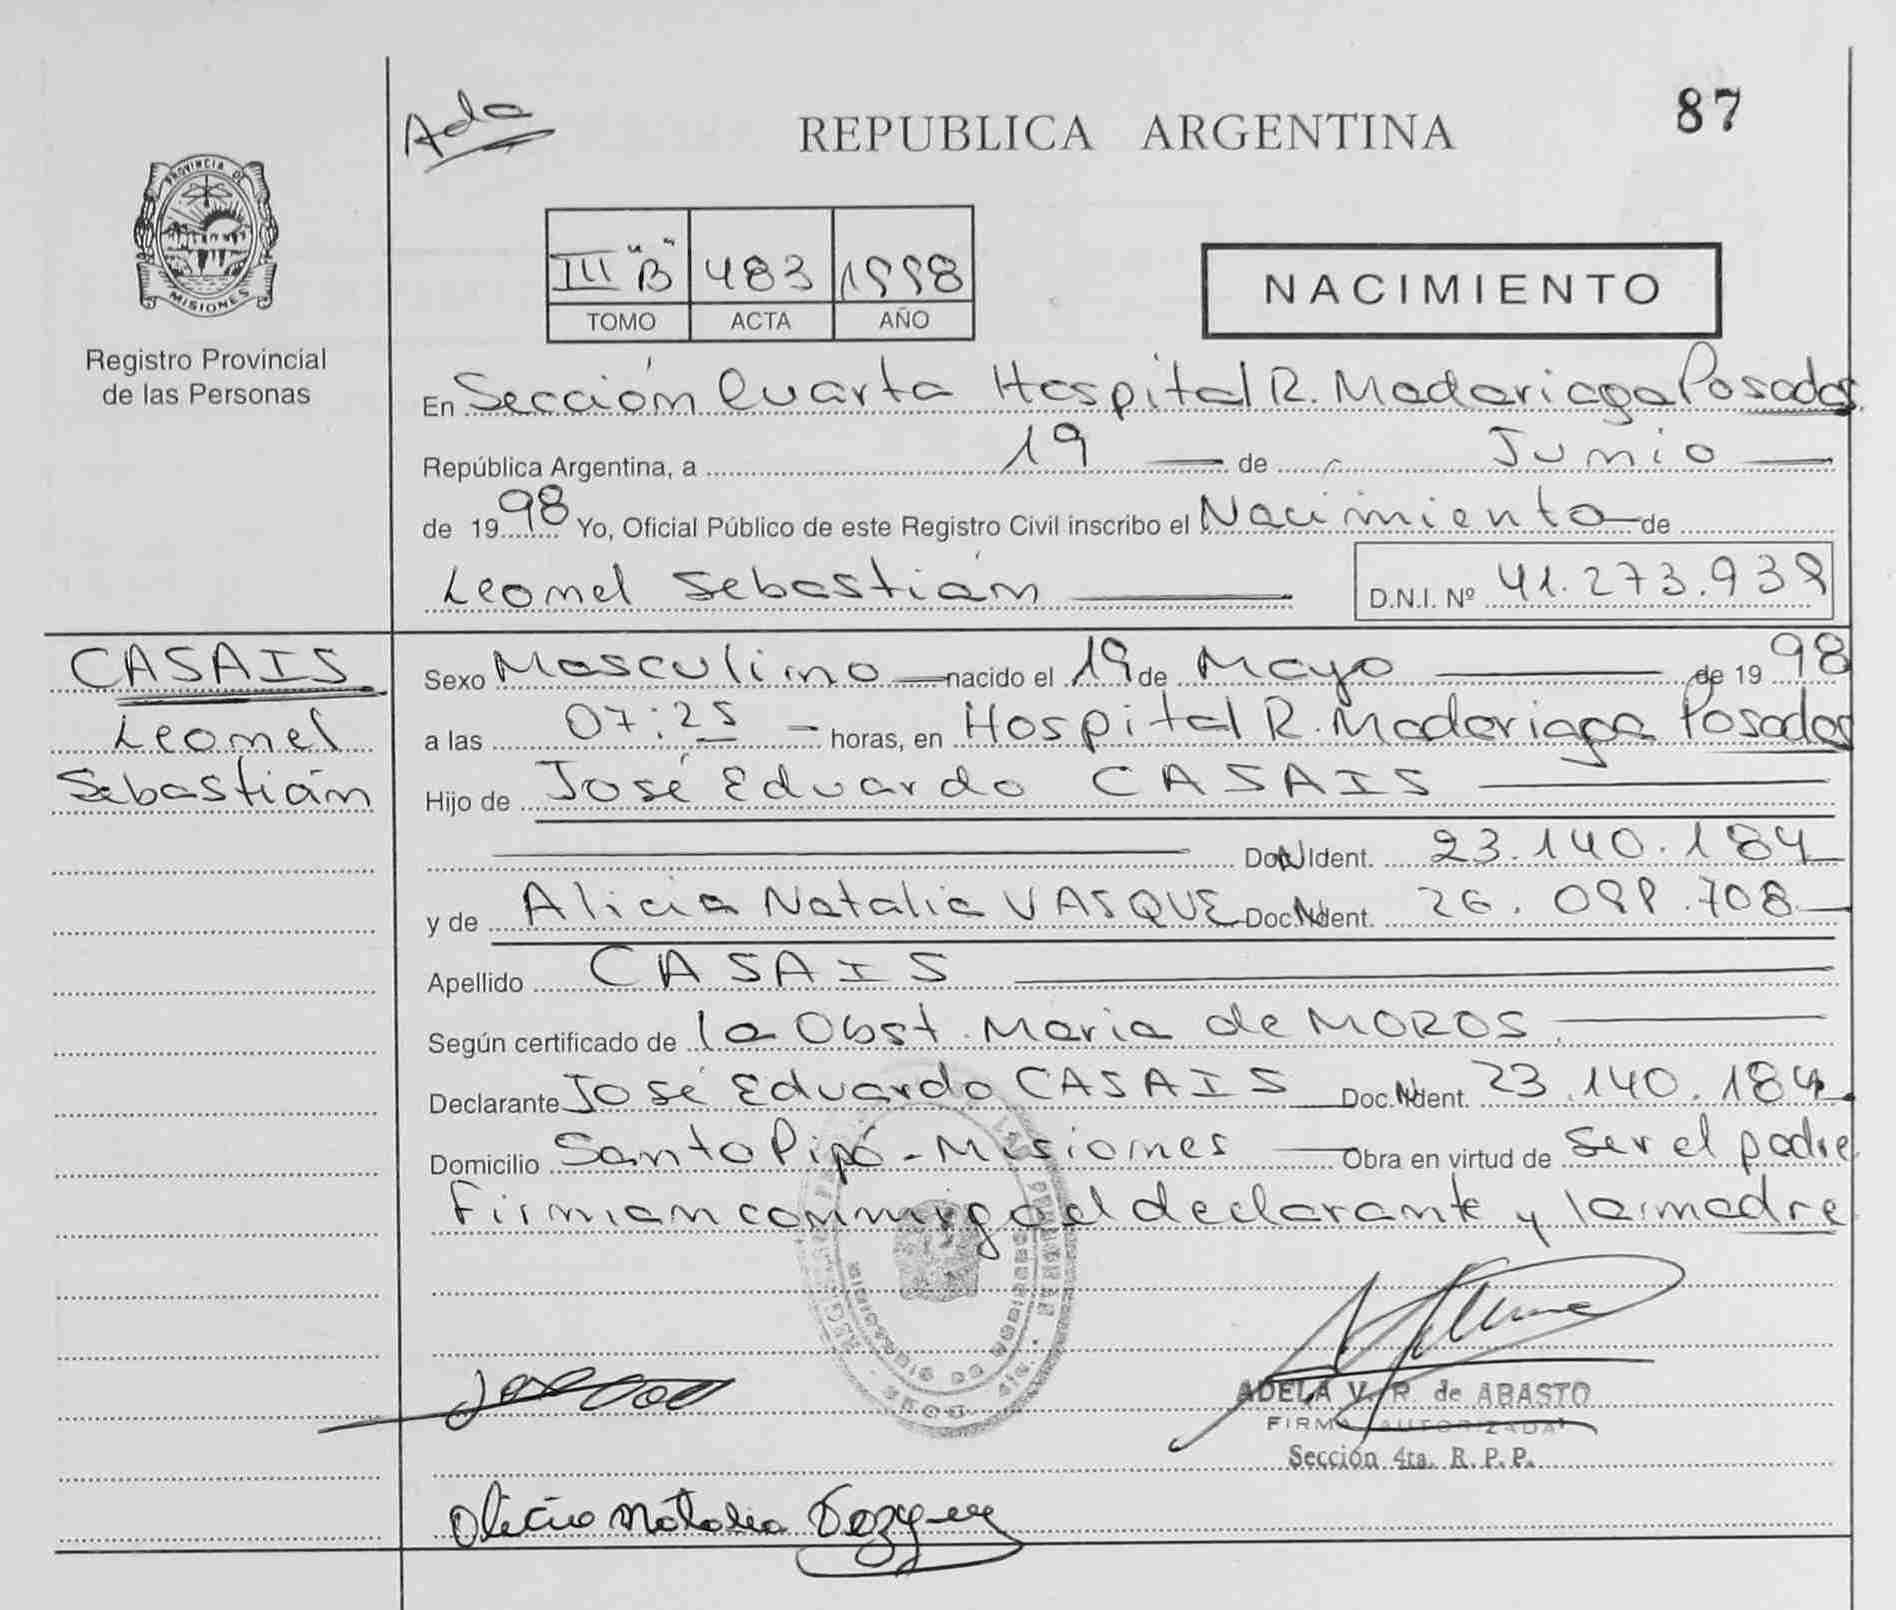 Ada
REPUBLICA ARGENTINA
87
PROVINCIA DE
MISIONES
Registro Provincial
de las Personas
III "B" 483 1998
TOMO ACTA AÑO
NACIMIENTO
En Sección Cuarta Hospital R. Madariaga Posadas
República Argentina, a 19 de Junio
de 1998 Yo, Oficial Público de este Registro Civil inscribo el Nacimiento de
Leonel Sebastián
D.N.I. Nº 41.273.939
CASAIS
Leonel
Sebastián
Sexo Masculino nacido el 19 de Mayo de 1998
a las 07:25 horas, en Hospital R. Madariaga Posadas
Hijo de José Eduardo CASAIS
Doc. N Ident. 23.140.184
y de Alicia Natalia VASQUE Doc. N Ident. 26.099.708
Apellido CASAIS
Según certificado de la Obst. Maria de MOROS
Declarante José Eduardo CASAIS Doc. N Ident. 23.140.184
Domicilio Santo Pipó - Misiones Obra en virtud de ser el padre
Firman conmigo el declarante y la madre
ADELA V. R. de ABASTO
FIRMA AUTORIZADA
Sección 4ta. R. P. P.
Alicia Natalia